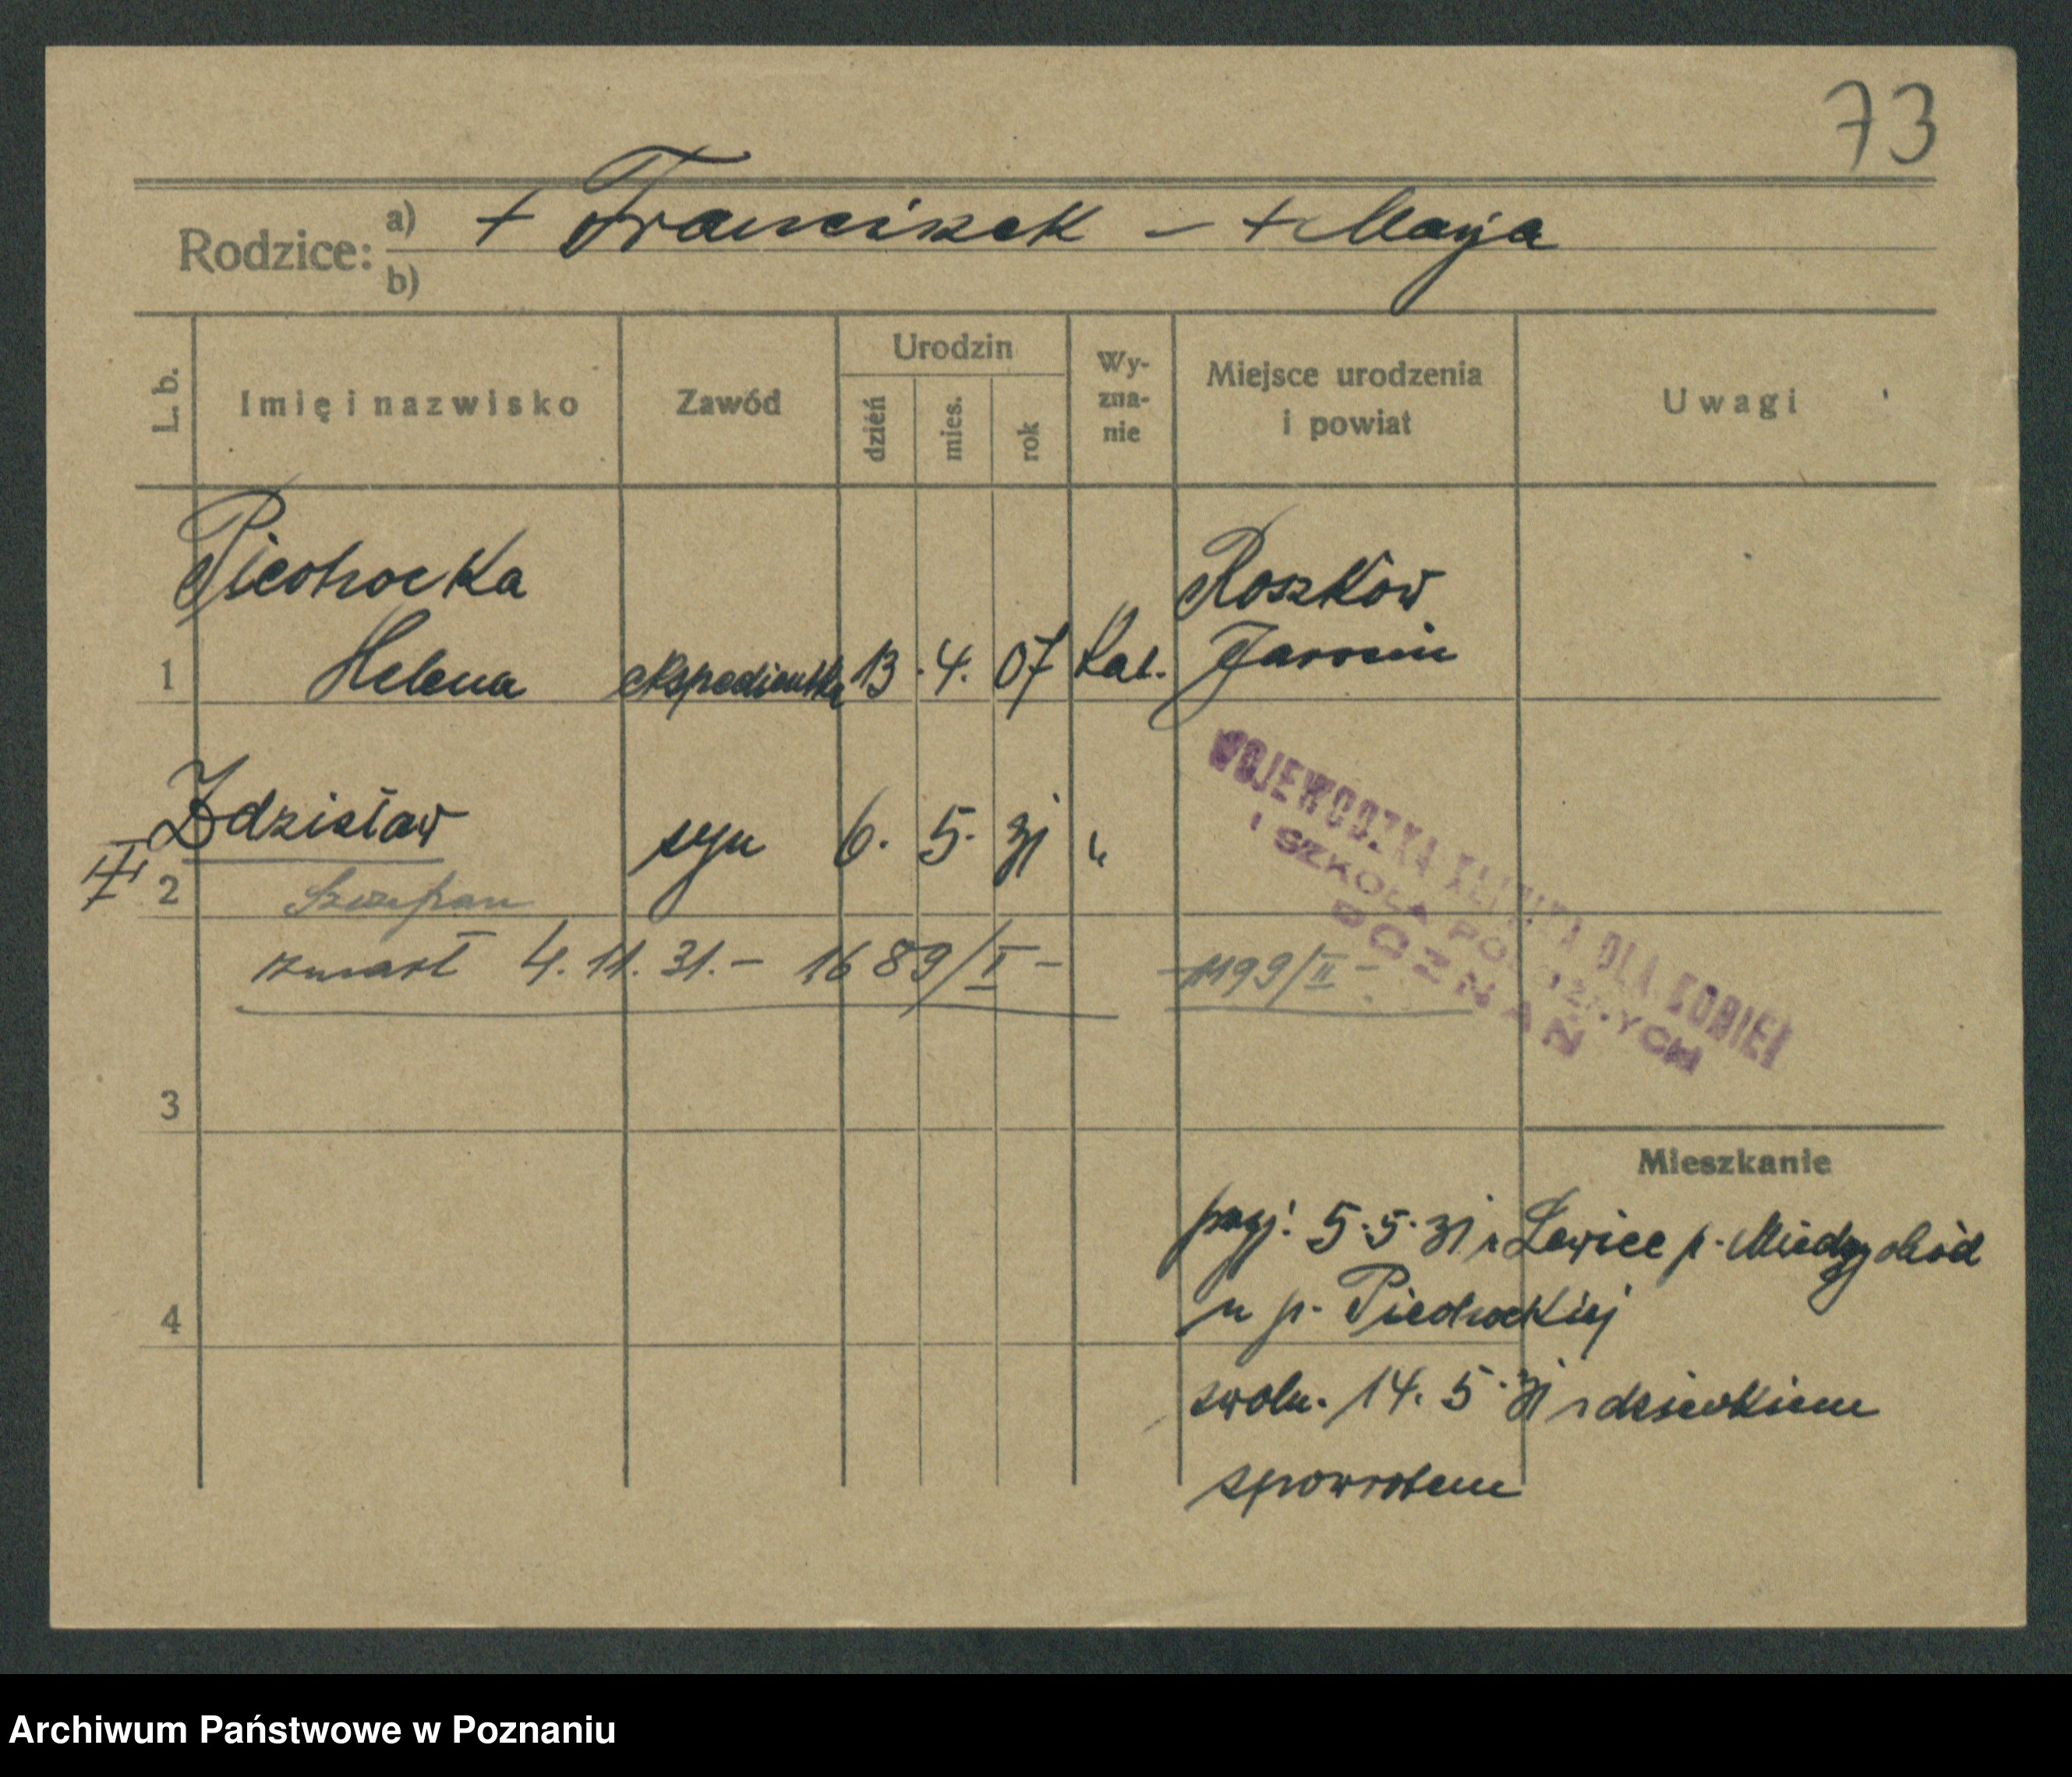 73
Rodzice: a) + Franciszek – + Marja
b)
L. b.
Imię i nazwisko
Zawód
Urodzin
dzień
mies.
rok
Wy-
zna-
nie
Miejsce urodzenia
i powiat
Uwagi
Piotrocka
Helena
1
ekspedientka
13. 4. 07
kat.
Roszków
Jarocin
Zdzisław
syn
6. 5. 31
"
III
2
Szczepan
zmarł 4. 11. 31. – 1689/I –
1199/II –
WOJEWÓDZKA KLINIKA DLA KOBIET
I SZKOŁA POŁOŻNYCH
POZNAŃ
3
Mieszkanie
przyj. 5. 5. 31 z Lewice p. Międzychód
4
u p. Piedrockiej
zwoln. 14. 5. 31 z dzieckiem
spowrotem
Archiwum Państwowe w Poznaniu